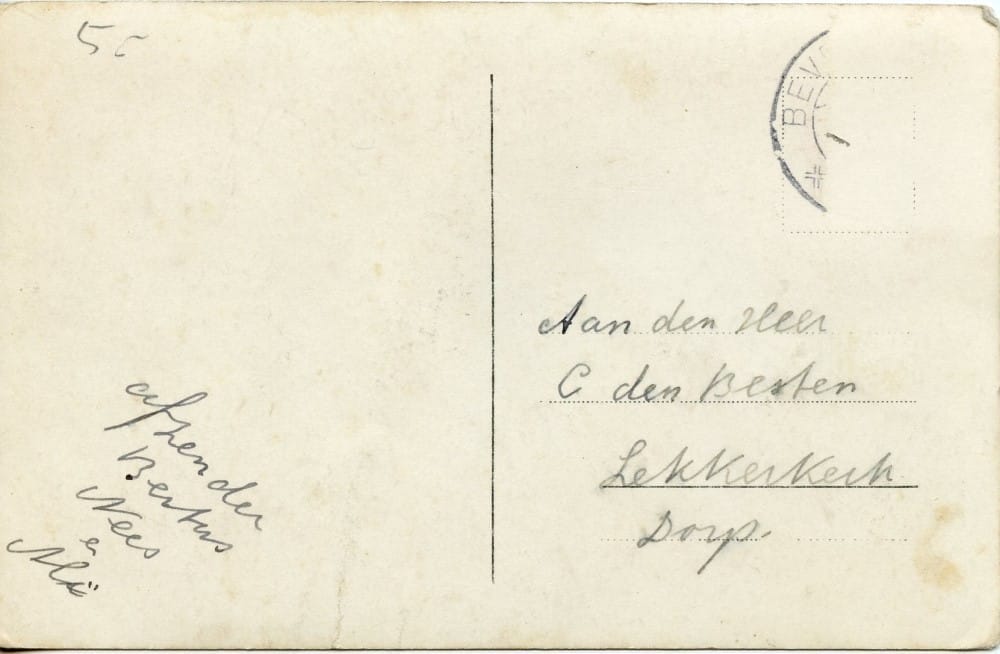 5
BEV
Aan den Heer
C den Besten
Lekkerkerk
Dorp.
afzender
Bertus
Nees
e